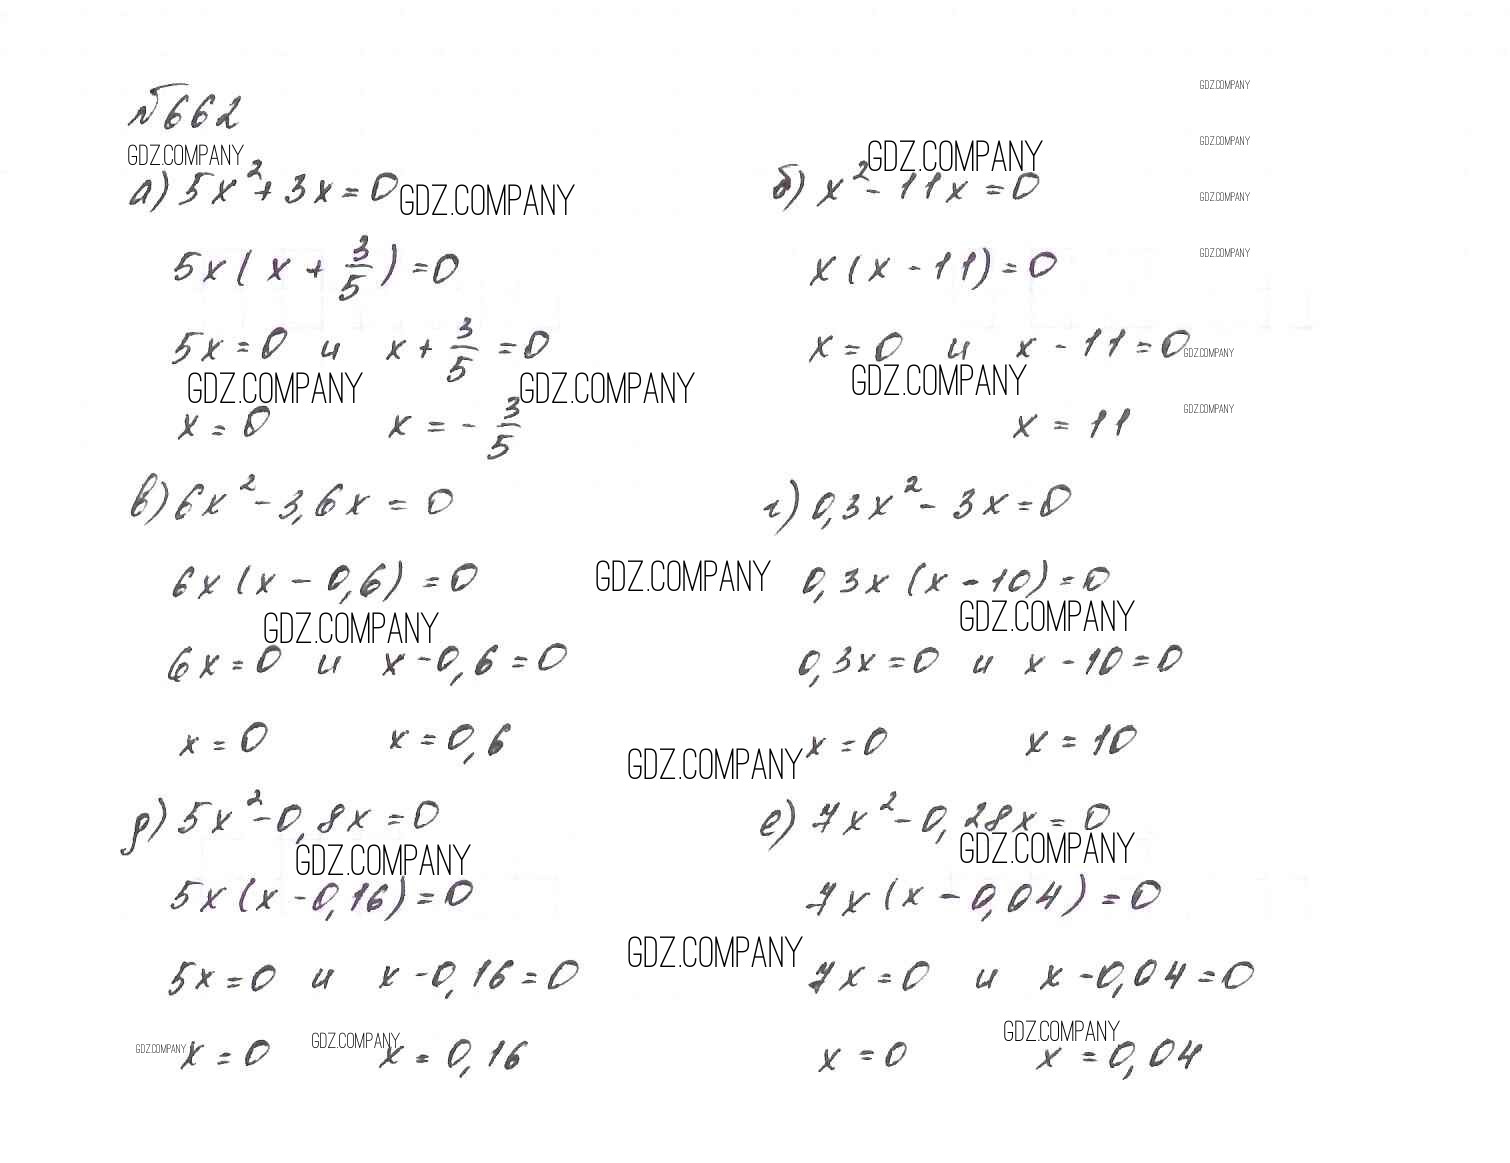 №662
GDZ.COMPANY
GDZ.COMPANY
а) 5x² + 3x = 0 GDZ.COMPANY
5x(x + 3/5) = 0
5x = 0 и x + 3/5 = 0
GDZ.COMPANY GDZ.COMPANY
x = 0 x = - 3/5
GDZ.COMPANY
б) x² - 11x = 0
GDZ.COMPANY
GDZ.COMPANY
x(x - 11) = 0 GDZ.COMPANY
x = 0 и x - 11 = 0 GDZ.COMPANY
GDZ.COMPANY
x = 11 GDZ.COMPANY
в) 6x² - 3,6x = 0
6x(x - 0,6) = 0 GDZ.COMPANY
GDZ.COMPANY
6x = 0 и x - 0,6 = 0
x = 0 x = 0,6
г) 0,3x² - 3x = 0
0,3x(x - 10) = 0
GDZ.COMPANY
0,3x = 0 и x - 10 = 0
GDZ.COMPANY x = 0 x = 10
д) 5x² - 0,8x = 0
GDZ.COMPANY
5x(x - 0,16) = 0
GDZ.COMPANY
5x = 0 и x - 0,16 = 0
GDZ.COMPANY GDZ.COMPANY
x = 0 x = 0,16
е) 7x² - 0,28x = 0
GDZ.COMPANY
7x(x - 0,04) = 0
7x = 0 и x - 0,04 = 0
GDZ.COMPANY
x = 0 x = 0,04